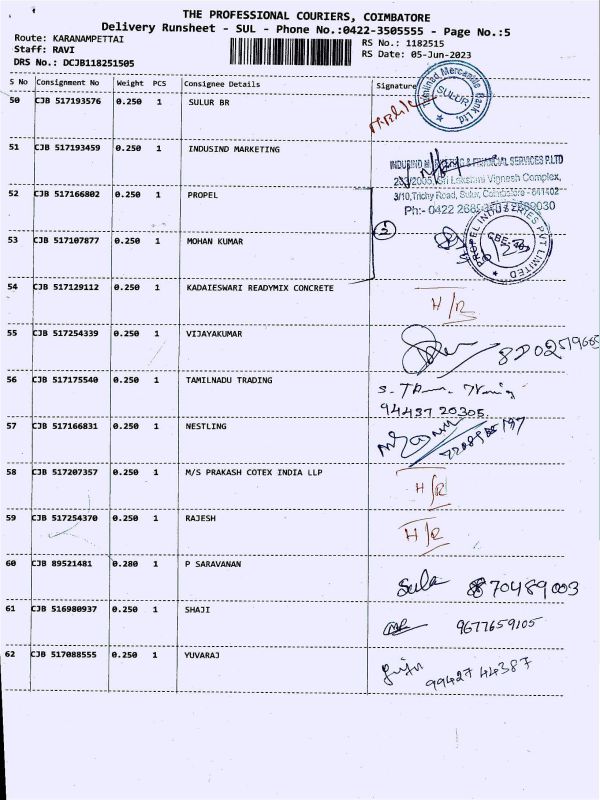 THE PROFESSIONAL COURIERS, COIMBATORE
Delivery Runsheet - SUL - Phone No.:0422-3505555 - Page No.:5
Route: KARANAMPETTAI
RS No.: 1182515
Staff: RAVI
RS Date: 05-Jun-2023
DRS No.: DCJB118251505
S No Consignment No Weight PCS Consignee Details Signature
50 CJB 517193576 0.250 1 SULUR BR
Tamilnad Mercantile Bank Ltd. SULUR
51 CJB 517193459 0.250 1 INDUSIND MARKETING
INDUSIND MARKETING & FINANCIAL SERVICES P.LTD
Lakshmi Vignesh Complex,
3/10, Trichy Road, Sulur, Coimbatore - 641402
Ph:- 0422
52 CJB 517166802 0.250 1 PROPEL
PROPEL INDUSTRIES PVT LIMITED
CBE
53 CJB 517107877 0.250 1 MOHAN KUMAR
54 CJB 517129112 0.250 1 KADAIESWARI READYMIX CONCRETE
H/R
55 CJB 517254339 0.250 1 VIJAYAKUMAR
56 CJB 517175540 0.250 1 TAMILNADU TRADING
94437 20305.
57 CJB 517166831 0.250 1 NESTLING
58 CJB 517207357 0.250 1 M/S PRAKASH COTEX INDIA LLP
H/R
59 CJB 517254370 0.250 1 RAJESH
H/R
60 CJB 89521481 0.280 1 P SARAVANAN
61 CJB 516980937 0.250 1 SHAJI
9677659105
62 CJB 517088555 0.250 1 YUVARAJ
99427 44387